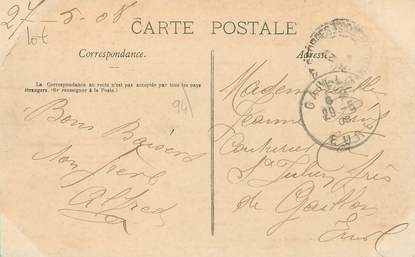 27-5-08
lot
CARTE POSTALE
Correspondance.
Adresse
La Correspondance au recto n'est pas acceptée par tous les pays
étrangers. (Se renseigner à la Poste.)
94
Bons Baisers
ton frère
Alfred
Mademoiselle
Jeanne
Couturière
St Julien près
de Gaillon
Eure
GAILLON
EURE